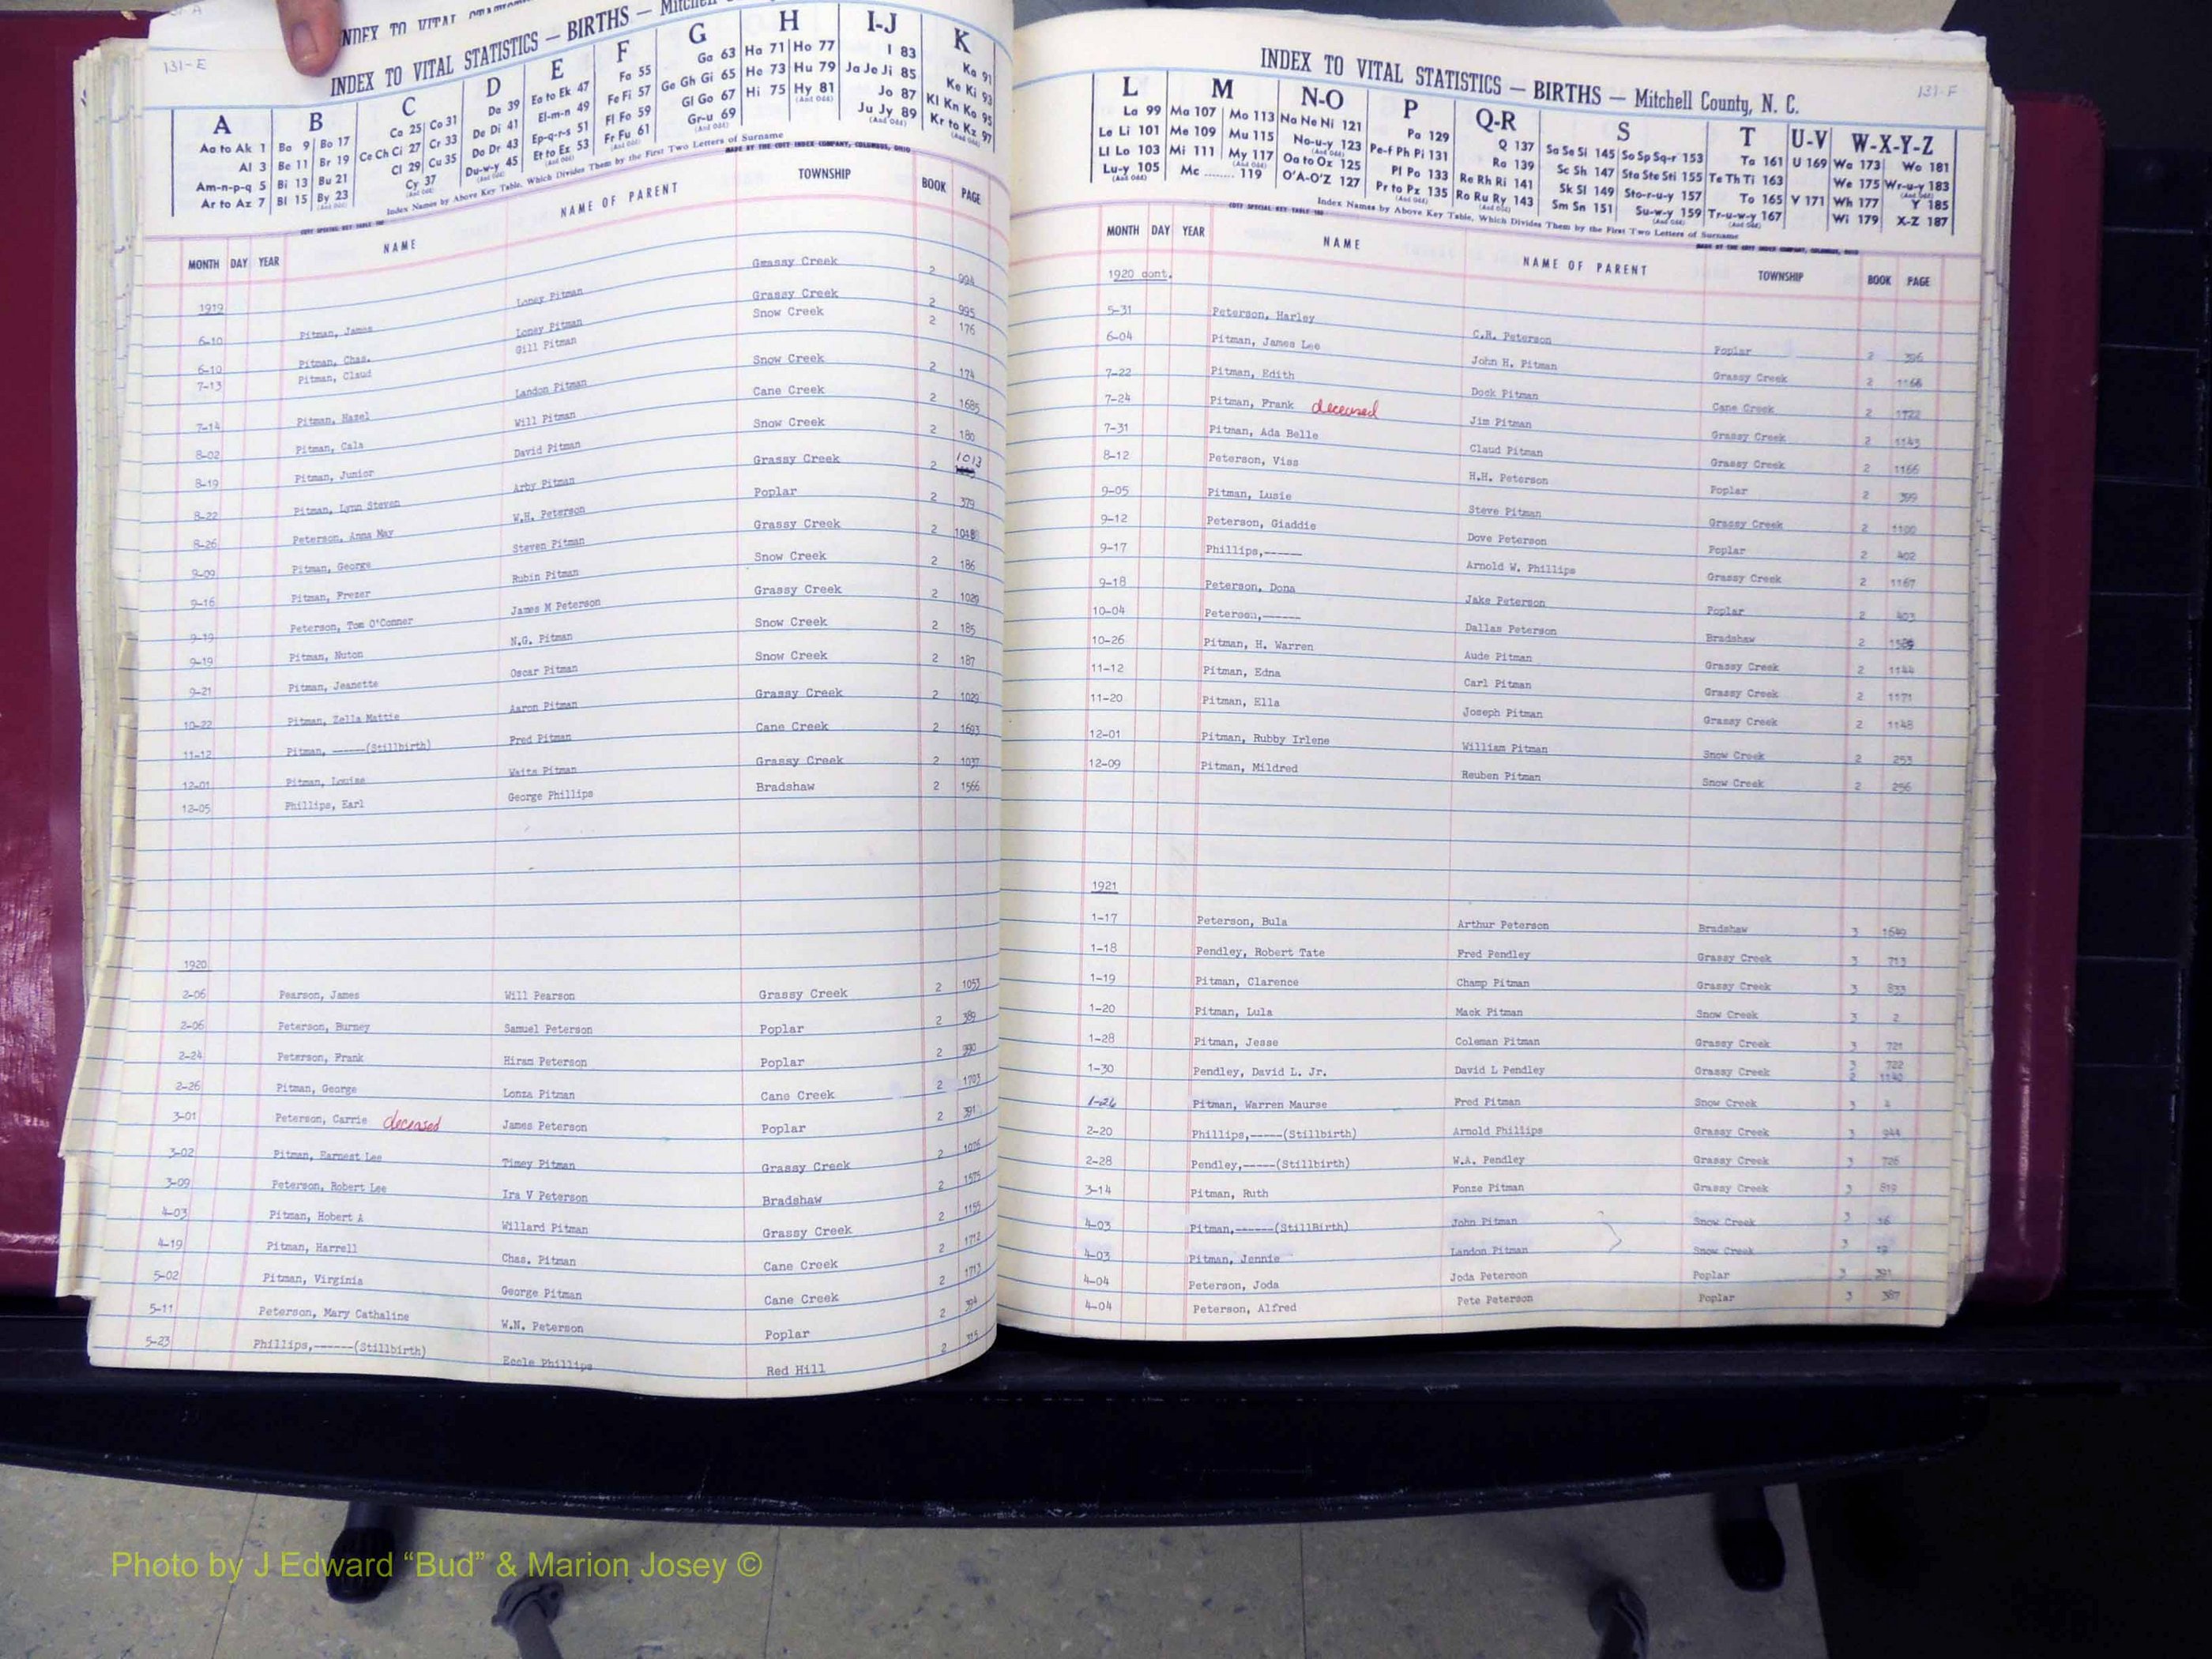 131-E
INDEX TO VITAL STATISTICS — BIRTHS —
INDEX TO VITAL STATISTICS — BIRTHS — Mitchell
A B C D E F G H I-J K
Aa to Ak 1 Ba 9 Bo 17 Ca 25 Co 31 Da 39 Ea to Ek 47 Fa 55 Ga 63 Ha 71 Ho 77 I 83 Ka 91
Al 3 Be 11 Br 19 Ce Ch Ci 27 Cr 33 De Di 41 El-m-n 49 Fe Fi 57 Ge Gh Gi 65 He 73 Hu 79 Ja Je Ji 85 Ke Ki 93
Am-n-p-q 5 Bi 13 Bu 21 Cl 29 Cu 35 Do Dr 43 Ep-q-r-s 51 Fl Fo 59 Gl Go 67 Hi 75 Hy 81 Jo 87 Kl Kn Ko 95
Ar to Az 7 Bl 15 By 23 Cy 37 Du-w-y 45 Et to Ex 53 Fr Fu 61 Gr-u 69 Ju Jy 89 Kr to Kz 97
Index Names by Above Key Table, Which Divides Them by the First Two Letters of Surname
MADE BY THE COTT INDEX COMPANY, COLUMBUS, OHIO
MONTH DAY YEAR NAME NAME OF PARENT TOWNSHIP BOOK PAGE
1919
6-10 Pitman, James Loney Pitman Grassy Creek 2 994
6-10 Pitman, Chas. Loney Pitman Grassy Creek 2 995
7-13 Pitman, Claud Gill Pitman Snow Creek 2 176
7-14 Pitman, Hazel Landon Pitman Snow Creek 2 174
8-02 Pitman, Cala Will Pitman Cane Creek 2 1685
8-19 Pitman, Junior David Pitman Snow Creek 2 180
8-22 Pitman, Lynn Steven Arby Pitman Grassy Creek 2 1013
8-26 Peterson, Anna May W.H. Peterson Poplar 2 379
9-09 Pitman, George Steven Pitman Grassy Creek 2 1018
9-16 Pitman, Frezer Rubin Pitman Snow Creek 2 186
9-19 Peterson, Tom O'Conner James M Peterson Grassy Creek 2 1029
9-19 Pitman, Nuton N.G. Pitman Snow Creek 2 185
9-21 Pitman, Jeanette Oscar Pitman Snow Creek 2 187
10-22 Pitman, Zella Mattie Aaron Pitman Grassy Creek 2 1029
11-12 Pitman, -----(Stillbirth) Fred Pitman Cane Creek 2 1693
12-01 Pitman, Louise Waits Pitman Grassy Creek 2 1037
12-05 Phillips, Earl George Phillips Bradshaw 2 1566
1920
2-06 Pearson, James Will Pearson Grassy Creek 2 1053
2-06 Peterson, Burney Samuel Peterson Poplar 2 389
2-24 Peterson, Frank Hiram Peterson Poplar 2 990
2-26 Pitman, George Lonza Pitman Cane Creek 2 1703
3-01 Peterson, Carrie deceased James Peterson Poplar 2 391
3-02 Pitman, Earnest Lee Timey Pitman Grassy Creek 2
3-09 Peterson, Robert Lee Ira V Peterson Bradshaw 2 1575
4-03 Pitman, Hobert A Willard Pitman Grassy Creek 2 1155
4-19 Pitman, Harrell Chas. Pitman Cane Creek 2 1712
5-02 Pitman, Virginia George Pitman Cane Creek 2 1713
5-11 Peterson, Mary Cathaline W.N. Peterson Poplar 2 394
5-23 Phillips,------(Stillbirth) Eccle Phillips Red Hill 2
131-F
INDEX TO VITAL STATISTICS — BIRTHS — Mitchell County, N. C.
L M N-O P Q-R S T U-V W-X-Y-Z
La 99 Ma 107 Mo 113 Na Ne Ni 121 Pa 129 Q 137 Sa Se Si 145 So Sp Sq-r 153 Ta 161 U 169 Wa 173 Wo 181
Le Li 101 Me 109 Mu 115 No-u-y 123 Pe-f Ph Pi 131 Ra 139 Sc Sh 147 Sta Ste Sti 155 Te Th Ti 163 We 175 Wr-u-y 183
Ll Lo 103 Mi 111 My 117 Oa to Oz 125 Pl Po 133 Re Rh Ri 141 Sk Sl 149 Sto-r-u-y 157 To 165 V 171 Wh 177 Y 185
Lu-y 105 Mc ........ 119 O'A-O'Z 127 Pr to Pz 135 Ro Ru Ry 143 Sm Sn 151 Su-w-y 159 Tr-u-w-y 167 Wi 179 X-Z 187
Index Names by Above Key Table, Which Divides Them by the First Two Letters of Surname
MONTH DAY YEAR NAME NAME OF PARENT TOWNSHIP BOOK PAGE
1920 cont.
5-31 Peterson, Harley C.R. Peterson Poplar 2 396
6-04 Pitman, James Lee John H. Pitman Grassy Creek 2 1166
7-22 Pitman, Edith Dock Pitman Cane Creek 2 1722
7-24 Pitman, Frank deceased Jim Pitman Grassy Creek 2 1143
7-31 Pitman, Ada Belle Claud Pitman Grassy Creek 2 1166
8-12 Peterson, Viss H.H. Peterson Poplar 2 399
9-05 Pitman, Lusie Steve Pitman Grassy Creek 2
9-12 Peterson, Giaddie Dove Peterson Poplar 2 402
9-17 Phillips,----- Arnold W. Phillips Grassy Creek 2 1167
9-18 Peterson, Dona Jake Peterson Poplar 2 403
10-04 Peterson,----- Dallas Peterson Bradshaw 2
10-26 Pitman, H. Warren Aude Pitman Grassy Creek 2 1144
11-12 Pitman, Edna Carl Pitman Grassy Creek 2 1171
11-20 Pitman, Ella Joseph Pitman Grassy Creek 2 1148
12-01 Pitman, Rubby Irlene William Pitman Snow Creek 2 253
12-09 Pitman, Mildred Reuben Pitman Snow Creek 2 256
1921
1-17 Peterson, Bula Arthur Peterson Bradshaw 3 1649
1-18 Pendley, Robert Tate Fred Pendley Grassy Creek 3 713
1-19 Pitman, Clarence Champ Pitman Grassy Creek 3 833
1-20 Pitman, Lula Mack Pitman Snow Creek 3 2
1-28 Pitman, Jesse Coleman Pitman Grassy Creek 3 721
1-30 Pendley, David L. Jr. David L Pendley Grassy Creek 3 722
2 1142
1-26 Pitman, Warren Maurse Fred Pitman Snow Creek 3
2-20 Phillips,-----(Stillbirth) Arnold Phillips Grassy Creek 3 944
2-28 Pendley,-----(Stillbirth) W.A. Pendley Grassy Creek 3 726
3-14 Pitman, Ruth Fonze Pitman Grassy Creek 3 819
4-03 Pitman,------(StillBirth) John Pitman Snow Creek 3 16
4-03 Pitman, Jennie Landon Pitman Snow Creek 3
4-04 Peterson, Joda Joda Peterson Poplar 3 391
4-04 Peterson, Alfred Pete Peterson Poplar 3 387
Photo by J Edward “Bud” & Marion Josey ©